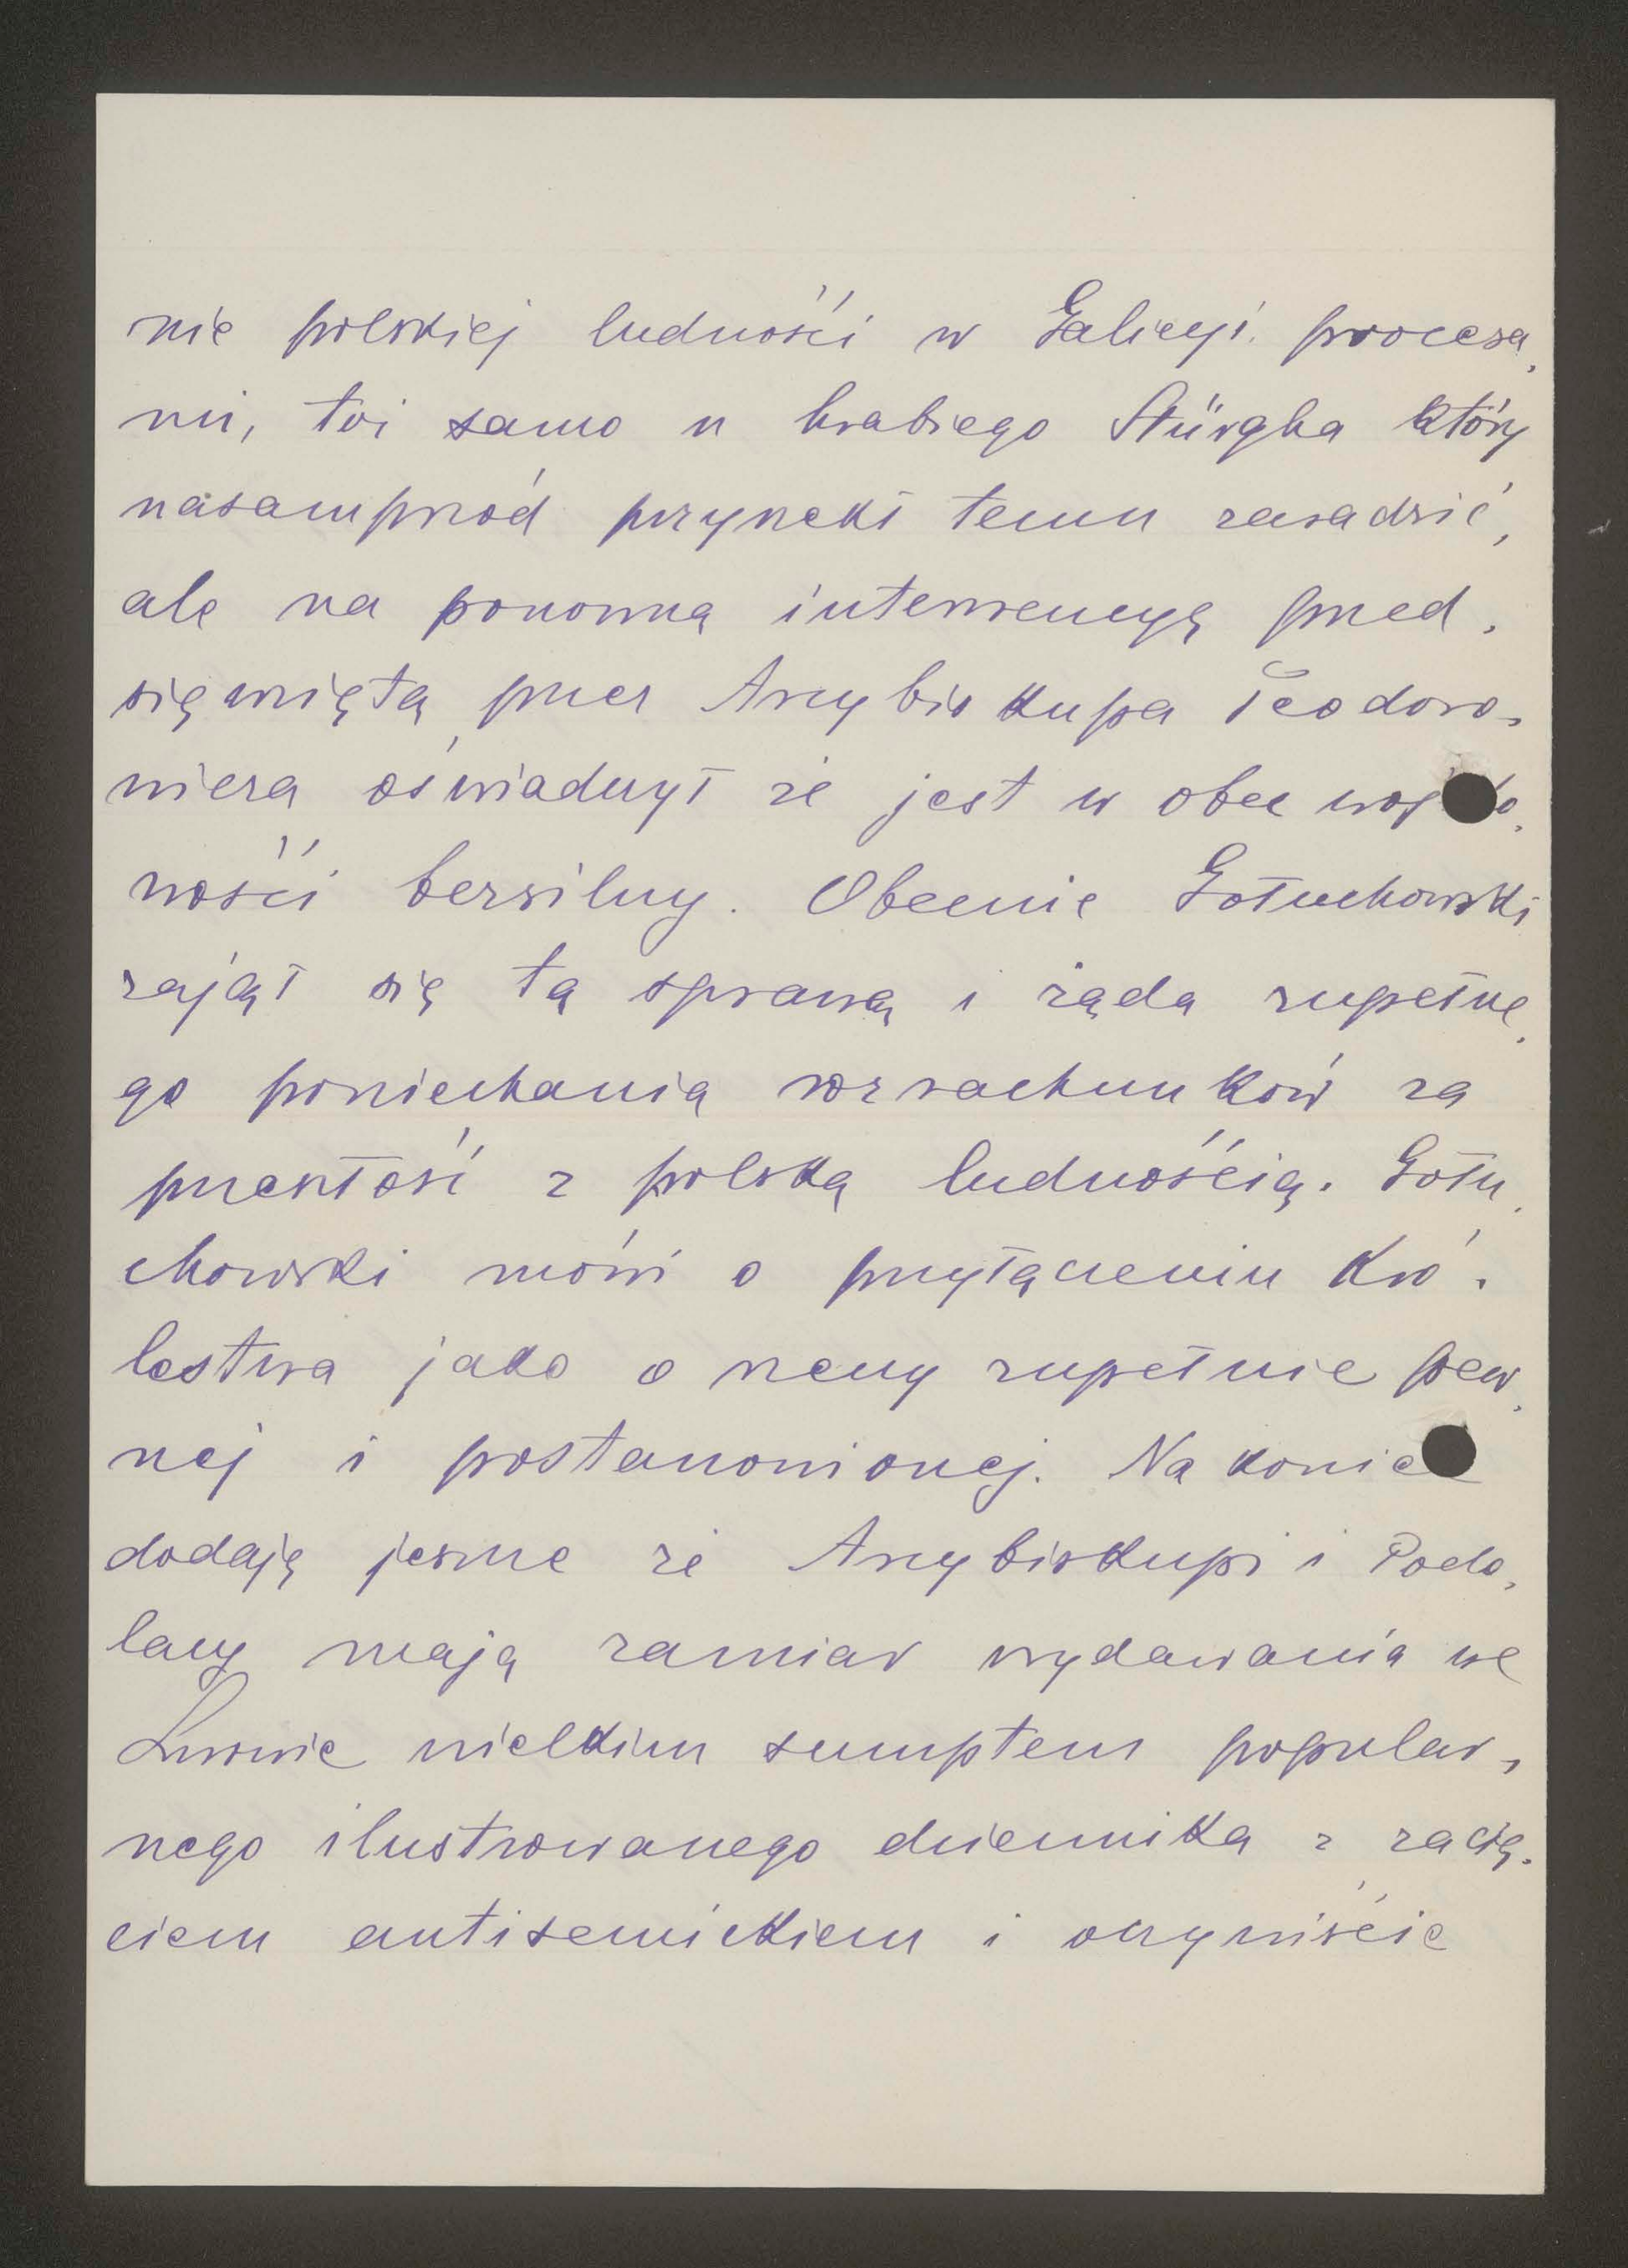 nie polskiej ludności w Galicyi. procesa,
mi, toż samo u hrabiego Stürgha który
nasamprzód przyrzekł temu zaradzić,
ale na ponowną interwencyę przed,
sięwziętą przez Arcybiskupa Teodoro,
wicza oświadczył że jest w obec wojsko,
wości bezsilny. Obecnie Gołuchowski
zajął się tą sprawą i żąda zupełne,
go poniechania rozrachunków za
przeszłość z polską ludnością. Gołu,
chowski mówi o przyłączeniu Kró,
lestwa jako o rzeczy zupełnie pew,
nej i postanowionej. Na koniec
dodaję jeszcze że Arcybiskupi i Podo,
lacy mają zamiar wydawania we
Lwowie wielkim sumptem popular,
nego ilustrowanego dziennika z zacię,
ciem antisemickiem i oczywiście